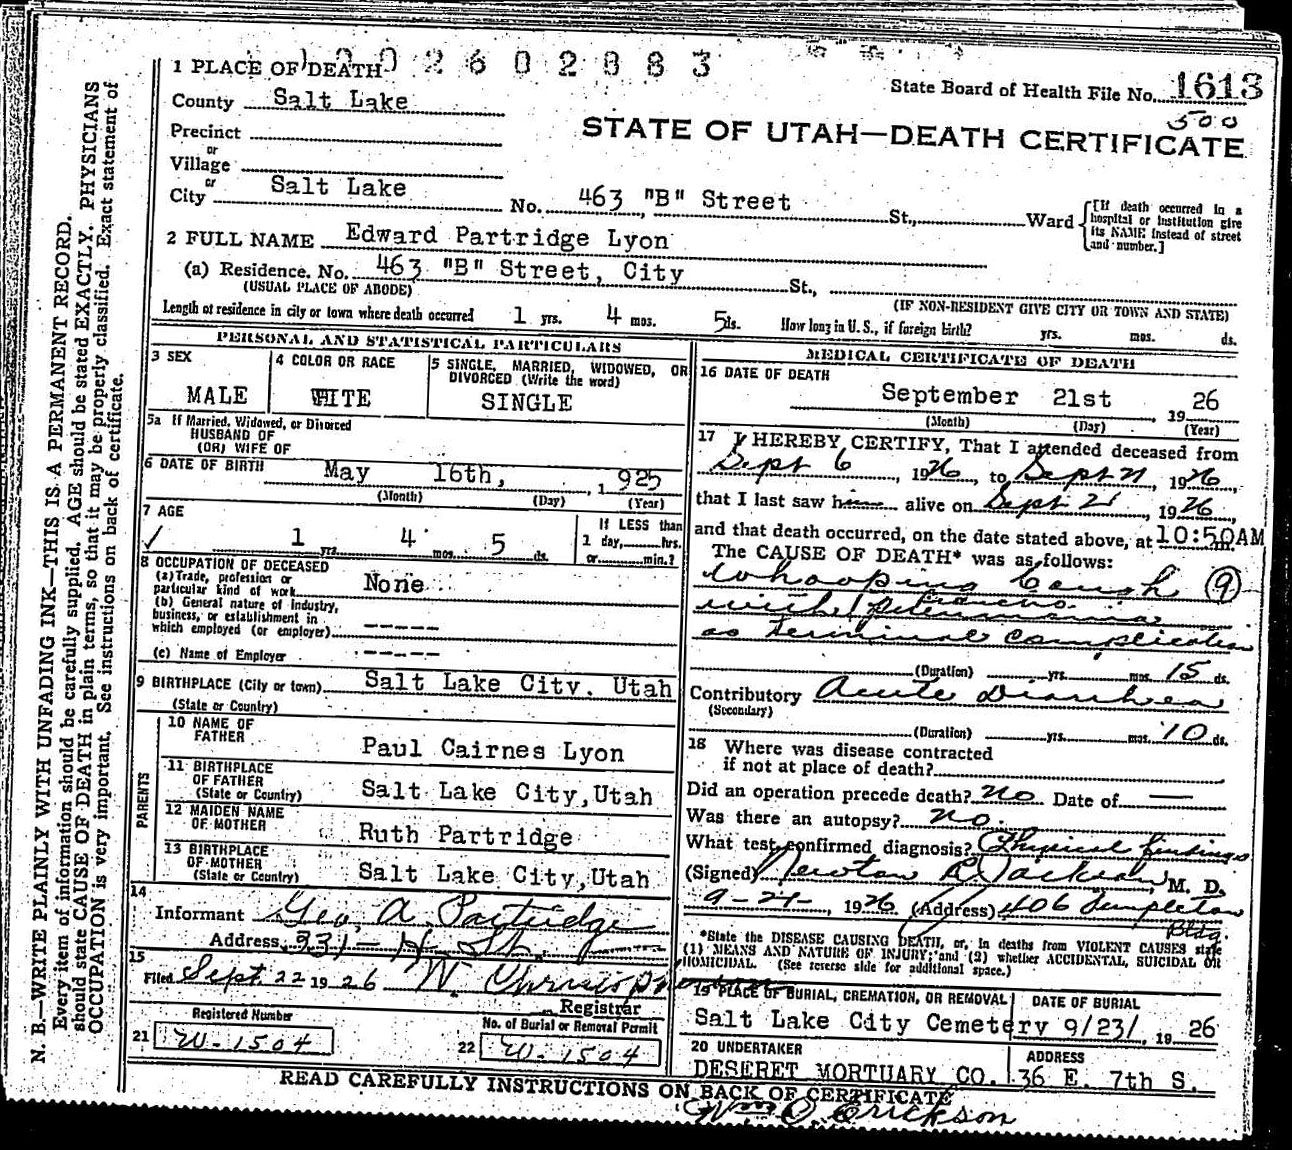 2602883
1 PLACE OF DEATH
State Board of Health File No. 1613
500
County Salt Lake
STATE OF UTAH—DEATH CERTIFICATE
Precinct
or
Village
or
City Salt Lake No. 463 "B" Street St., Ward
[If death occurred in a hospital or institution give its NAME instead of street and number.]
2 FULL NAME Edward Partridge Lyon
(a) Residence. No. 463 "B" Street, City St.,
(USUAL PLACE OF ABODE) (IF NON-RESIDENT GIVE CITY OR TOWN AND STATE)
Length of residence in city or town where death occurred 1 yrs. 4 mos. 5 ds. How long in U. S., if foreign birth? yrs. mos. ds.
PERSONAL AND STATISTICAL PARTICULARS
3 SEX
MALE
4 COLOR OR RACE
WHITE
5 SINGLE, MARRIED, WIDOWED, OR
DIVORCED (Write the word)
SINGLE
5a If Married, Widowed, or Divorced
HUSBAND OF
(OR) WIFE OF
6 DATE OF BIRTH May 16th, 1925
(Month) (Day) (Year)
7 AGE
1 yrs. 4 mos. 5 ds.
If LESS than
1 day, hrs.
or min.?
8 OCCUPATION OF DECEASED
(a) Trade, profession or
particular kind of work None
(b) General nature of industry,
business, or establishment in
which employed (or employer) -----
(c) Name of Employer -----
9 BIRTHPLACE (City or town) Salt Lake City, Utah
(State or Country)
PARENTS
10 NAME OF
FATHER Paul Cairnes Lyon
11 BIRTHPLACE
OF FATHER
(State or Country) Salt Lake City, Utah
12 MAIDEN NAME
OF MOTHER Ruth Partridge
13 BIRTHPLACE
OF MOTHER
(State or Country) Salt Lake City, Utah
14
Informant Geo. A Partridge
Address 331 - H St.
15
Filed Sept. 22 1926 W. Christopherson
Registrar
Registered Number
21 W-1504
No. of Burial or Removal Permit
22 W-1504
MEDICAL CERTIFICATE OF DEATH
16 DATE OF DEATH
September 21st 1926
(Month) (Day) (Year)
17 I HEREBY CERTIFY, That I attended deceased from
Sept 6, 1926, to Sept 21, 1926,
that I last saw him alive on Sept 21, 1926,
and that death occurred, on the date stated above, at 10:50AM m.
The CAUSE OF DEATH* was as follows:
Whooping Cough (9)
with broncho pneumonia
as terminal complication
(Duration) yrs. mos. 15 ds.
Contributory Acute Diarrhea
(Secondary)
(Duration) yrs. mos. 10 ds.
18 Where was disease contracted
if not at place of death?
Did an operation precede death? No Date of —
Was there an autopsy? No.
What test confirmed diagnosis? Physical findings
(Signed) Newton Jackson, M. D.
9-21-, 1926 (Address) 406 Templeton
Bldg.
*State the DISEASE CAUSING DEATH, or, in deaths from VIOLENT CAUSES state
(1) MEANS AND NATURE OF INJURY; and (2) whether ACCIDENTAL, SUICIDAL OR
HOMICIDAL. (See reverse side for additional space.)
19 PLACE OF BURIAL, CREMATION, OR REMOVAL
Salt Lake City Cemetery
DATE OF BURIAL
9/23/, 1926
20 UNDERTAKER
DESERET MORTUARY CO.
ADDRESS
36 E. 7th S.
READ CAREFULLY INSTRUCTIONS ON BACK OF CERTIFICATE
Wm O. Erickson
N. B.—WRITE PLAINLY WITH UNFADING INK—THIS IS A PERMANENT RECORD.
Every item of information should be carefully supplied. AGE should be stated EXACTLY. PHYSICIANS
should state CAUSE OF DEATH in plain terms, so that it may be properly classified. Exact statement of
OCCUPATION is very important. See instructions on back of certificate.